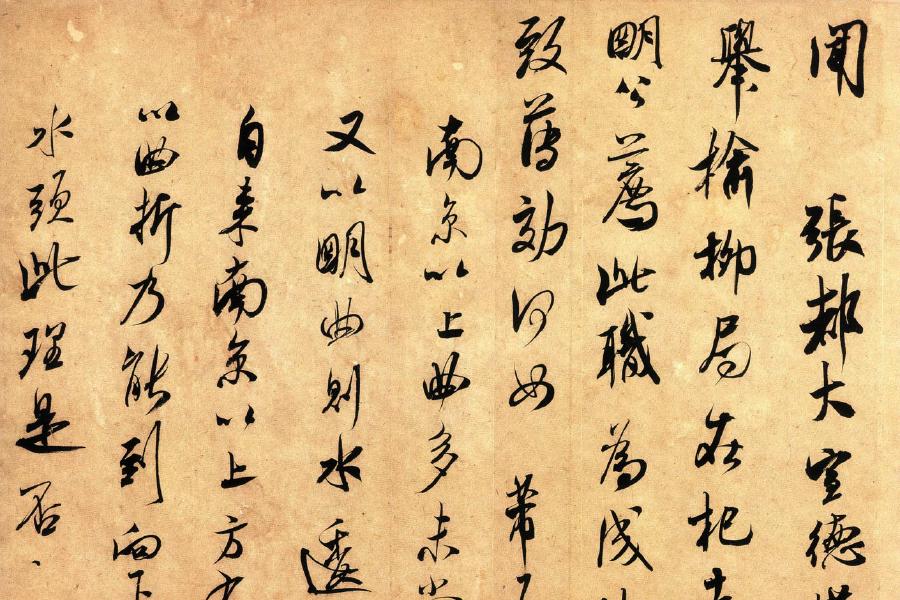 聞 張都大宣德
舉榆柳局在杞
明公薦此職為成
致薄効何如 芾
南京以上曲多未
又以明曲則水逶
自来南京以上方
以曲折乃能到向下
水頭此理是否